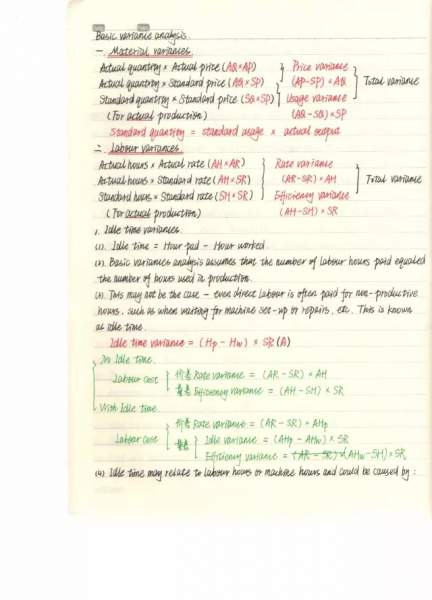 Basic variance analysis
一. Material variances.
Actual quantity × Actual price (AQ×AP) } Price variance
Actual quantity × Standard price (AQ × SP) (AP-SP) × AQ } Total variance
Standard quantity × Standard price (SQ×SP) } Usage variance
(For actual production) (AQ-SQ)×SP
Standard quantity = standard usage × actual output
二. Labour variances.
Actual hours × Actual rate (AH×AR) } Rate variance
Actual hours × Standard rate (AH×SR) (AR-SR) × AH } Total variance
Standard hours × Standard rate (SH×SR) Efficiency variance
(For actual production) (AH-SH) × SR
1. Idle time variances.
(1). Idle time = Hour paid - Hour worked.
(2). Basic variances analysis assumes that the number of labour hours paid equaled
the number of hours used in production.
(3). This may not be the case - even direct labour is often paid for non-productive
hours, such as when waiting for machine set-up or repairs, etc. This is known
as idle time.
Idle time variance = (Hp - Hw) × SR (A)
No Idle time.
Labour cost { 价差 Rate variance = (AR - SR) × AH
量差 Efficiency variance = (AH - SH) × SR
With Idle time
价差 Rate variance = (AR - SR) × AHp
Labour cost { 量差 { Idle variance = (AHp - AHw) × SR
Efficiency variance = (AHw - SH) × SR
(4). Idle time may relate to labour hours or machine hours and could be caused by :